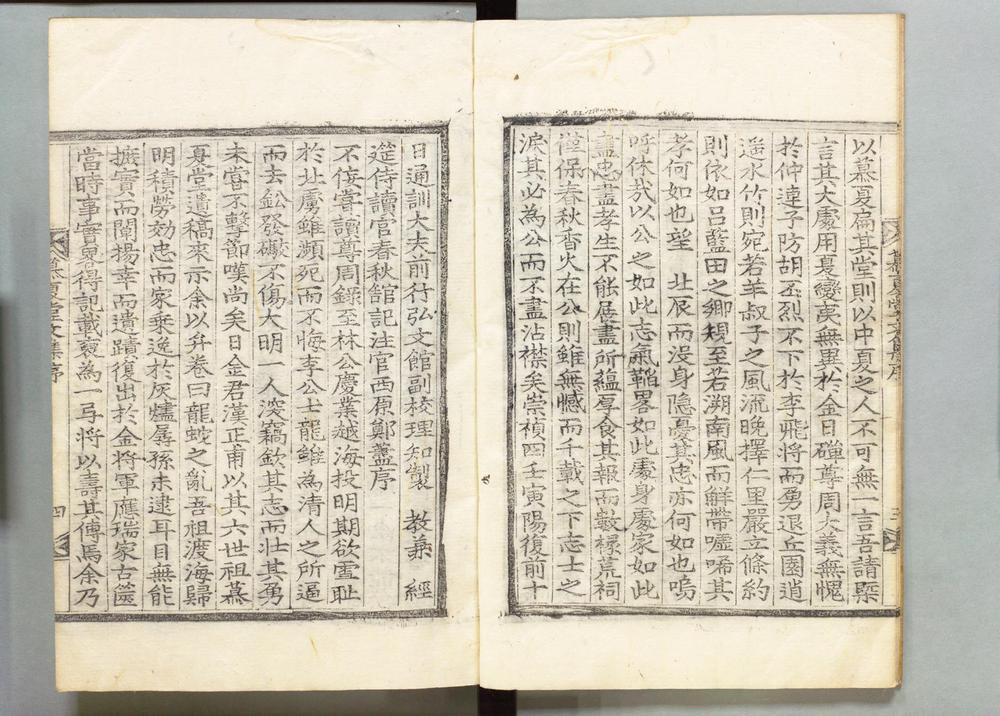 以慕夏扁其堂則以中夏之人不可無一言吾請槩
言其大處用夏變夷無異於金日磾尊周大義無愧
於仲連子防胡丕烈不下於李飛將而勇退丘園逍
遙水竹則宛若羊叔子之風流晚擇仁里嚴立條約
則依如呂藍田之鄉規至若溯南風而鮮帶噓唏其
孝何如也望 北辰而沒身隐憂其忠亦何如也嗚
呼休哉以公之如此志氣韜畧如此處身處家如此
盡忠盡孝生不能展盡所蘊厚食其報而數椽荒祠
僅保春秋香火在公則雖無憾而千載之下志士之
淚其必為公而不盡沾襟矣崇禎四壬寅陽復前十
日通訓大夫前行弘文館副校理 知製 教兼 經
筵侍讀官春秋館記注官西原鄭㙫序
不侫嘗讀尊周錄至林公慶業越海投明期欲雪耻
於北虜雖瀕死而不悔李公士龍雖為清人之所逼
而去鈆發礮不傷大明一人深竊欽其志而壯其勇
未嘗不擊節嘆尚矣日金君漢正甫以其六世祖慕
夏堂遺稿來示余以弁卷曰龍蛇之亂吾祖渡海歸
明積勞効忠而家乘逸於灰燼孱孫未逮耳目無能
摭實而闡揚幸而遺蹟復出於金將軍應瑞家古篋
當時事實畧得記載裒為一弓将以壽其傳焉余乃
慕夏堂文集序 三
慕夏堂文集序 四